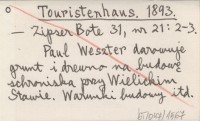 Touristenhaus. 1893.
— Zipser Bote 31, nr 21: 2-3.
Paul Weszter darowuje
grunt i drewno na budowę
schroniska przy Wielickim
Stawie. Warunki budowy itd.